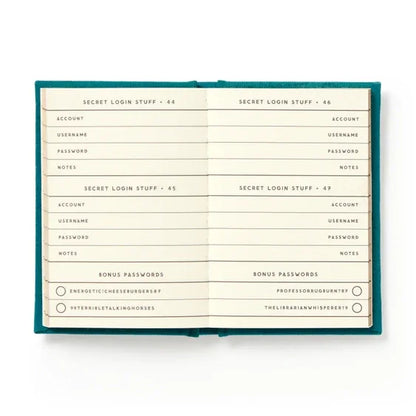 SECRET LOGIN STUFF • 44
ACCOUNT
USERNAME
PASSWORD
NOTES
SECRET LOGIN STUFF • 45
ACCOUNT
USERNAME
PASSWORD
NOTES
BONUS PASSWORDS
ENERGETIC!CHEESEBURGERS#
9#TERRIBLETALKINGHORSES
SECRET LOGIN STUFF • 46
ACCOUNT
USERNAME
PASSWORD
NOTES
SECRET LOGIN STUFF • 47
ACCOUNT
USERNAME
PASSWORD
NOTES
BONUS PASSWORDS